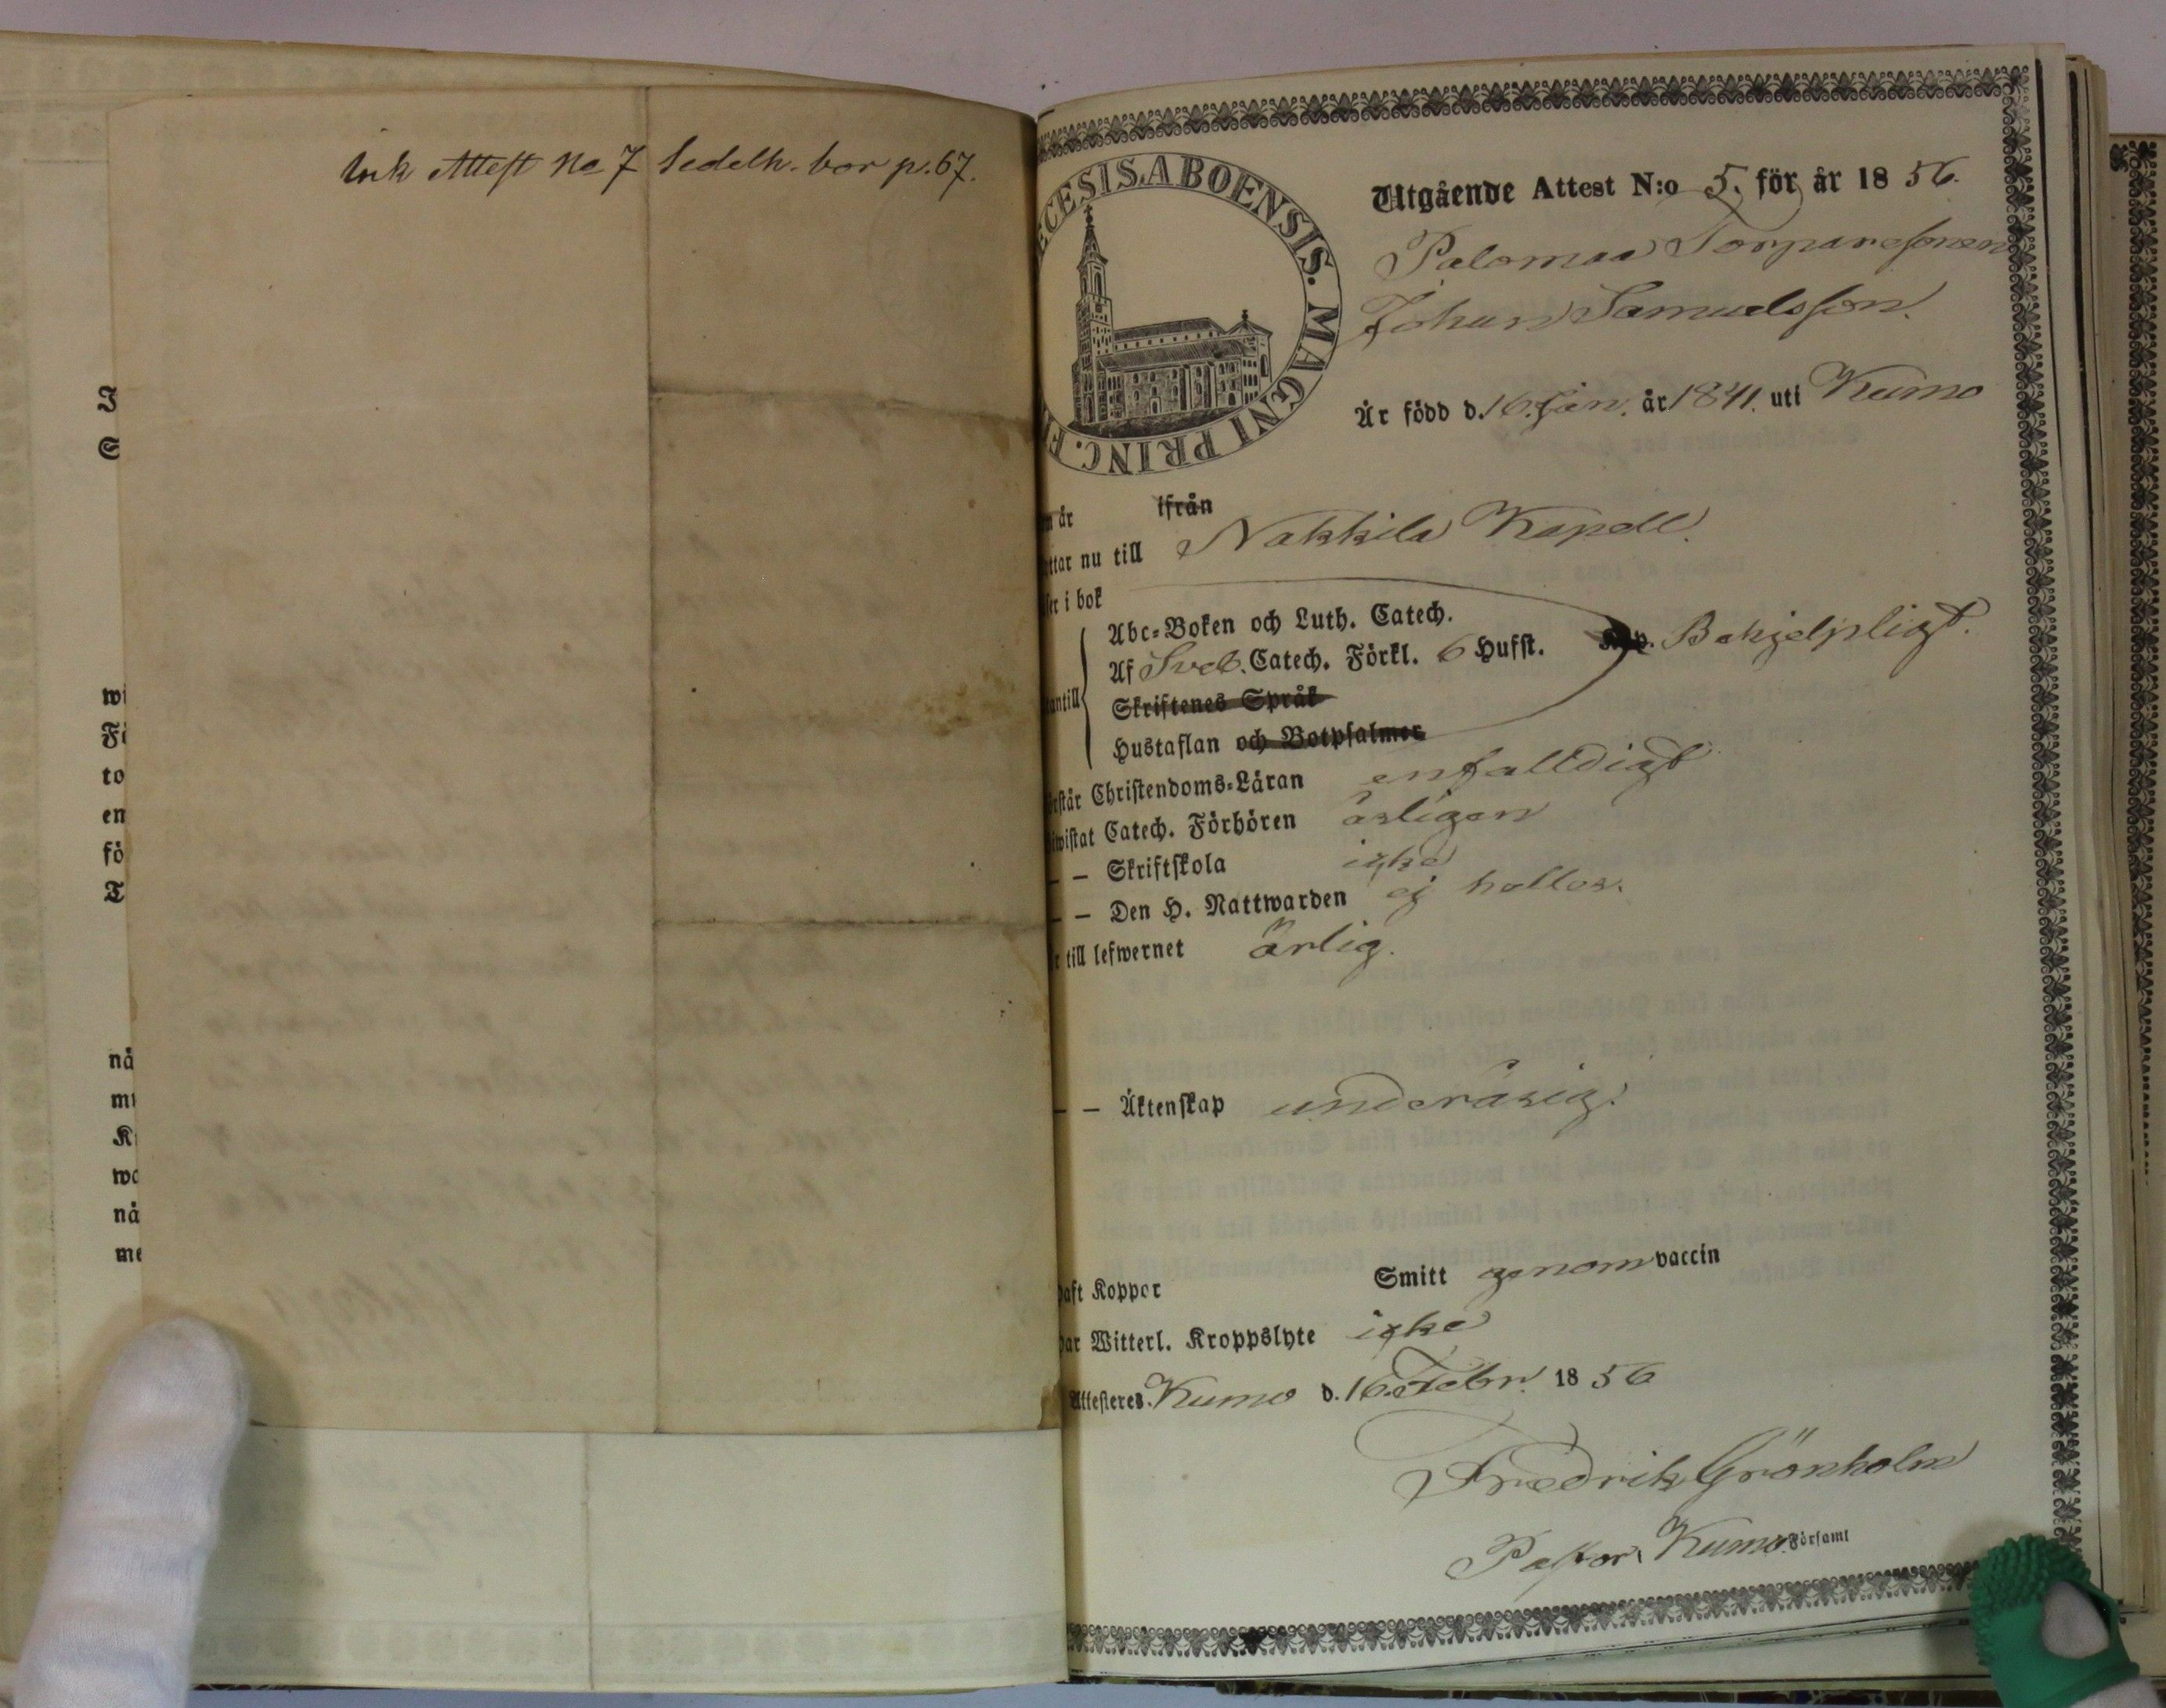 Ink Attest No 7 Sedelh. bor p. 67.
I
S
wi
Fö
to
en
fö
T
nå
mi
K
wa
nå
me
ECESIS.ABOENSIS. MAGNI PRINC. FI
Utgående Attest N:o 5. för år 1856.
Palomaa Torparesonen
Johan Samuelsson.
Är född d. 16. Jan. år 1841. uti Kumo
n är ifrån
ttar nu till Nakkila Kapell.
ser i bok
Abc-Boken och Luth. Catech.
Af Sveb. Catech. Förkl. 6 Hufst. Behjelpligt.
antill
Skriftenes Språk
Hustaflan och Botpsalmer
rstår Christendoms-Läran enfalldigt
iwistat Catech. Förhören årligen
— — Skriftskola icke
— — Den H. Nattwarden ej heller.
r till lefwernet ärlig.
— — Äktenskap underårig.
aft Koppor Smitt genom vaccin
ar Witterl. Kroppslyte icke
Attesteres. Kumo d. 16. Febr. 1856
Fredrik Grönholm
Pastor, Kumo Församl